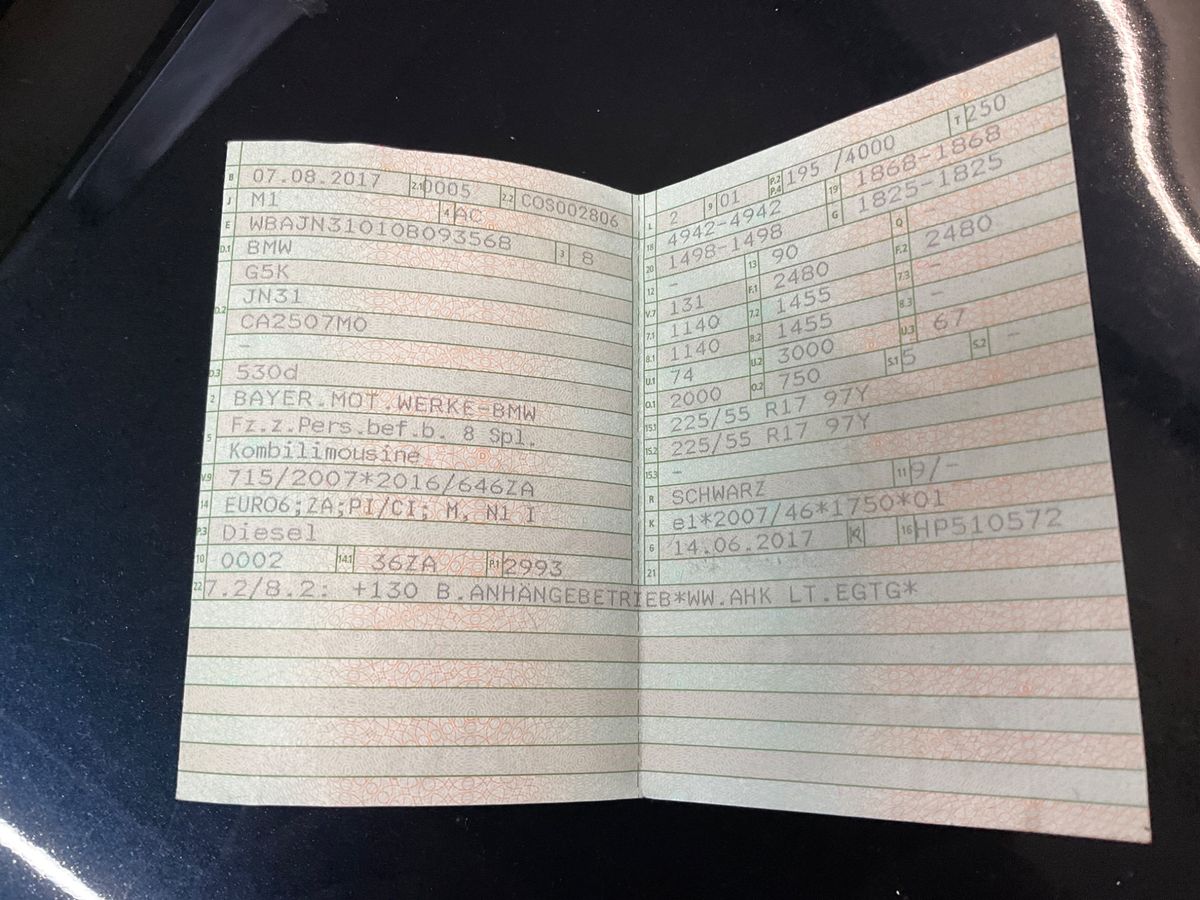 B 07.08.2017 2.1 0005 2.2 COS002806
J M1 4 AC
E WBAJN31010B093568 3 8
D.1 BMW
G5K
D.2 JN31
CA2507M0
-
D.3 530d
2 BAYER.MOT.WERKE-BMW
5 Fz.z.Pers.bef.b. 8 Spl.
Kombilimousine
V.9 715/2007*2016/646ZA
14 EURO6;ZA;PI/CI; M, N1 I
P.3 Diesel
10 0002 14.1 36ZA P.1 2993
22 7.2/8.2: +130 B.ANHÄNGEBETRIEB*WW.AHK LT.EGTG*
L 2 9 01 P.2 P.4 195 /4000 T 250
18 4942-4942 19 1868-1868
20 1498-1498 G 1825-1825
12 - 13 90 Q -
V.7 131 F.1 2480 F.2 2480
7.1 1140 7.2 1455 7.3 -
8.1 1140 8.2 1455 8.3 -
U.1 74 U.2 3000 U.3 67
O.1 2000 O.2 750 S.1 5 S.2 -
15.1 225/55 R17 97Y
15.2 225/55 R17 97Y
15.3 -
R SCHWARZ 11 9/-
K e1*2007/46*1750*01
6 14.06.2017 17 K 16 HP510572
21